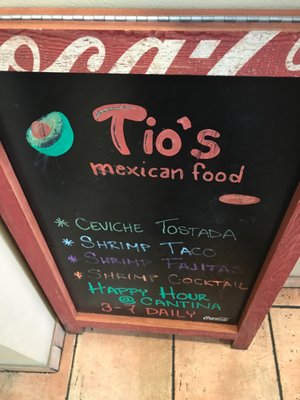 Coca-Cola
Tio's
mexican food
* Ceviche Tostada
* Shrimp Taco
* Shrimp Fajitas
* Shrimp Cocktail
Happy Hour
@ Cantina
3-7 Daily